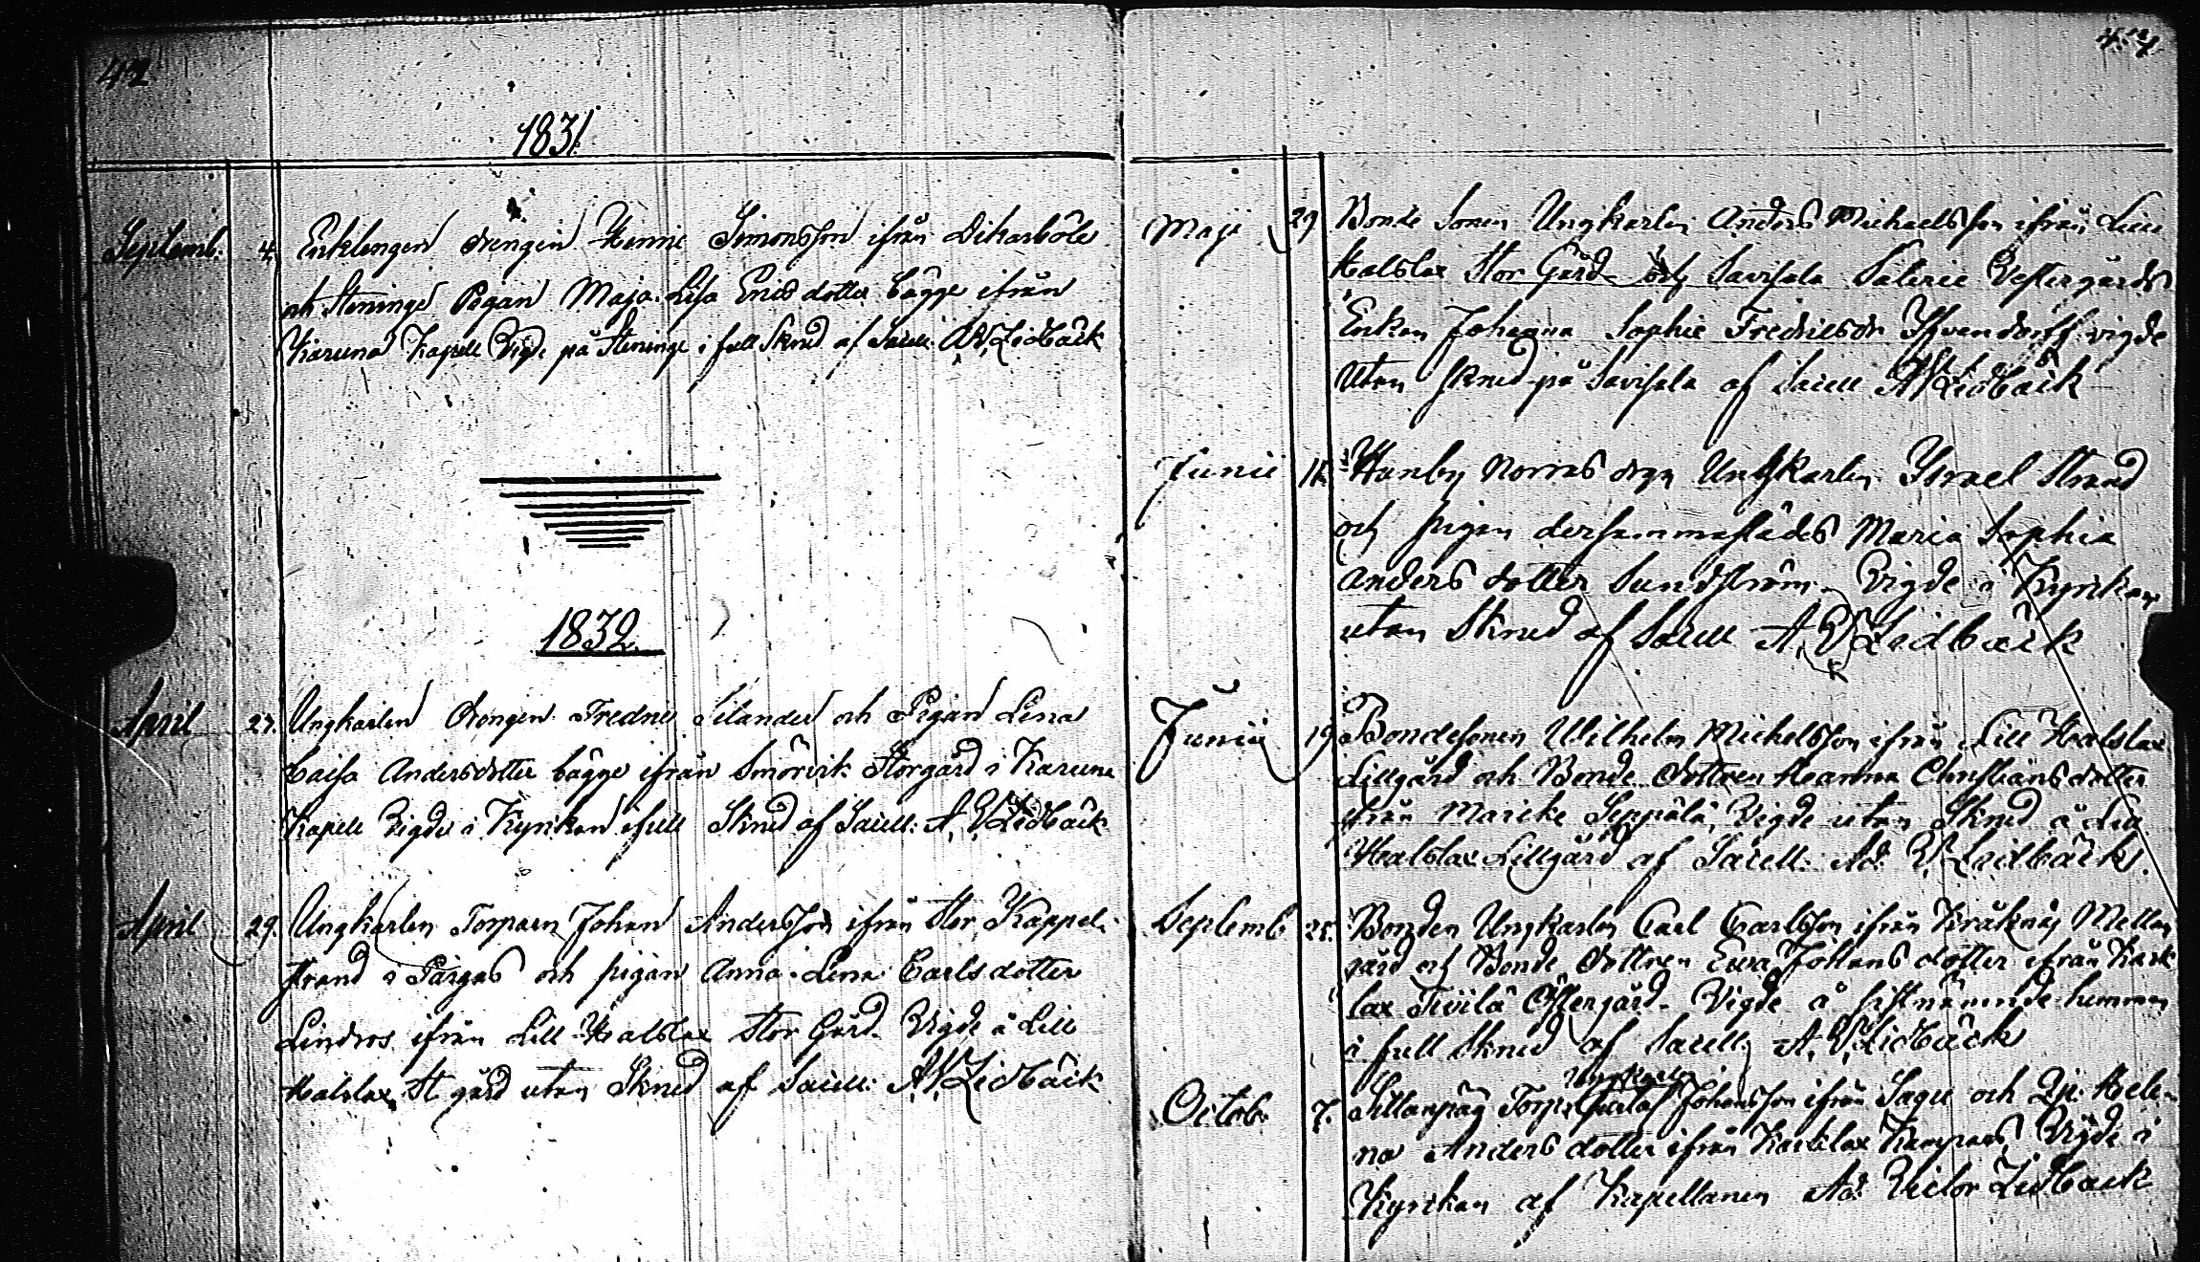 42
1831
Septemb. 4. Enklingen drengen Henric Simonsson ifrån Dikarböle
och Steninge Pigan Maja Lisa Ericsdotter bägge ifrån
Karuna Kapell Vigde på Steninge i full Skrud af Sacell: A.V. Lidbäck
1832.
April 27. Ungkarlen Drengen Fredric Selander och Pigan Lena
Caisa Andersdotter bägge ifrån Smörvik Storgård i Karuna
Kapell Vigde i Kyrkan i full Skrud af Sacell: A. V. Lidbäck
April 29. Ungkarlen Torparen Johan Andersson ifrån Stor Kappel-
strand i Pargas och pigan Anna Lena Carlsdotter
Lindros ifrån Lill Halslax Stor Gård Vigde å Lill
Halslax St gård utan Skrud af Sacell: A.V. Lidbäck
Maji 29 Bonde Sonen Ungkarlen Anders Michaelsson ifrån Lill
Halslax Stor Gård och Savisala Vestergårds
Enkan Johanna Sophie Fredricsdr vigde
utan skrud på Savisala af Sacell A V Lidbäck
Junii Norrns drgn Ungkarlen Israel Strand
och pigan dersammastädes Maria Sophia
Anders dotter Sundström. Vigde i Kyrkan
utan Skrud af Sacell A. V. Lidbäck
Junii 19 Bondesonen Wilhelm Michelsson ifrån Lill Halslax
Lillgård och Bonde Dottren Hanna Christiansdotter
ifrån Marcke Seppälä, Vigde utan Skrud å Lill
Halslax Lillgård af Sacell: Ad. V. Lidbäck.
Septemb 25. Bonden Ungkarlen Carl Carlsson ifrån Kråknäs Mellan
gård och Bonde Dottren Eva Johansdotter ifrån Kark
lax Tivilä Östergård. Vigde å sistnämnde hemman
i full Skrud af Sacell: A. V. Lidbäck
Ungkarln
Octob: 7. Torp: Gustaf Johansson ifrån Sagu och Pig: Hele-
na Anders dotter ifrån Karklax Vigde i
Kyrkan af Kapellanen Ad. Victor Lidbäck